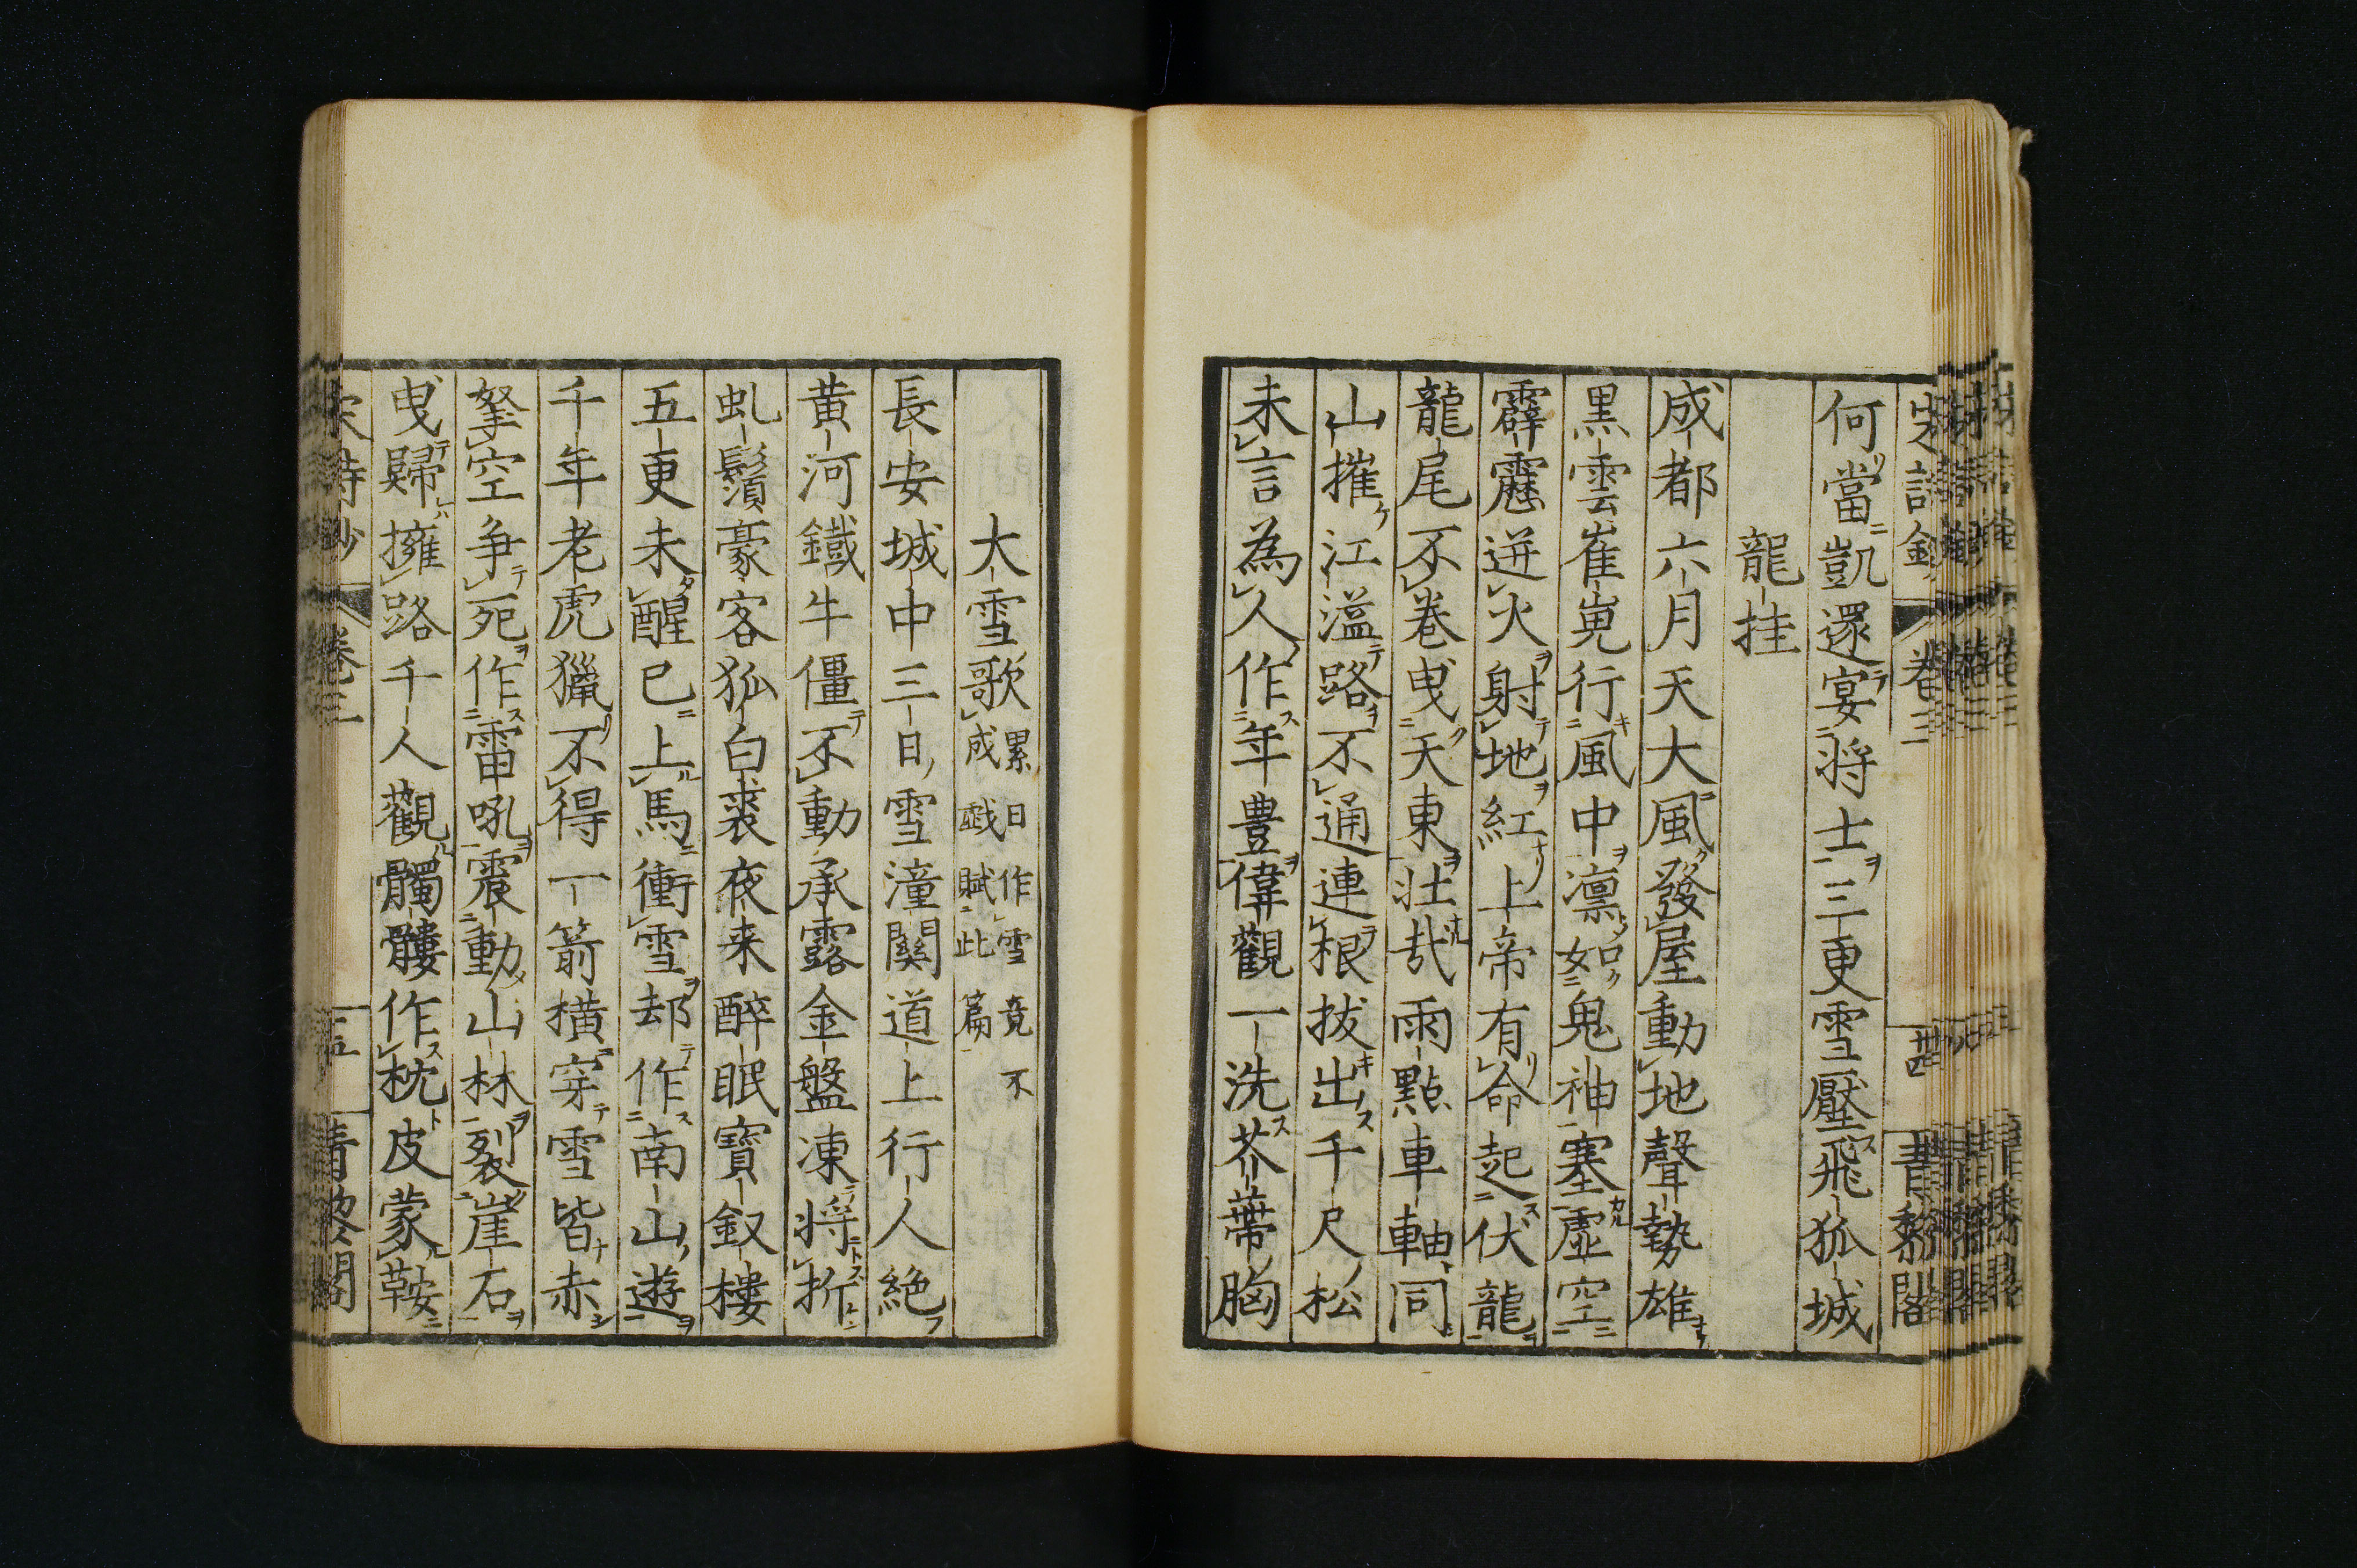 宋詩鈔 卷三 廿四 青黎閣
何當凱還宴将士三更雪壓飛狐城
龍挂
成都六月天大風發屋動地聲勢雄
黒雲崔嵬行風中凛如鬼神塞虚空
霹靂迸火射地紅上帝有命起伏龍
龍尾不卷曳天東壮哉雨點車軸同
山摧江溢路不通連根拔出千尺松
未言為人作年豊偉觀一洗芥蔕胸
大雪歌累日作雪竟不成戯賦此篇
長安城中三日雪潼關道上行人絶
黄河鐵牛僵不動承露金盤凍将折
虬鬚豪客狐白裘夜来醉眠寶釵樓
五更未醒已上馬衝雪却作南山遊
千年老虎獵不得一箭横穿雪皆赤
拏空争死作雷吼震動山林裂崖石
曳歸擁路千人觀髑髏作枕皮蒙鞍
宋詩鈔 卷三 青黎閣